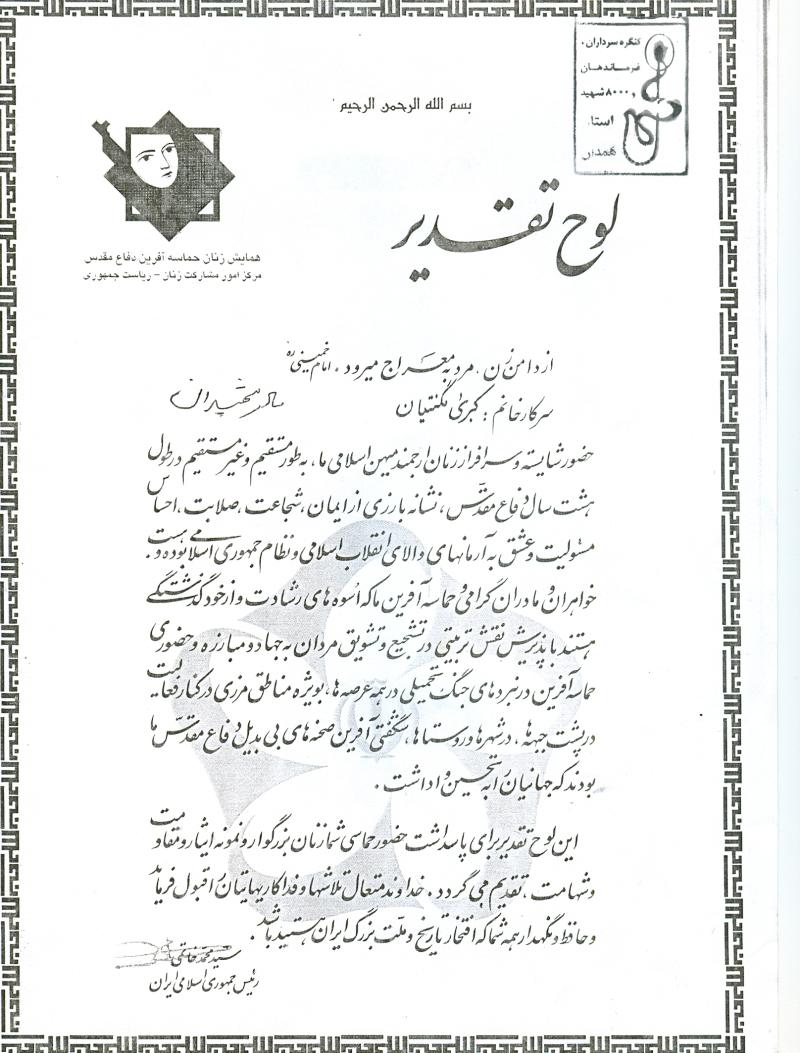 بسم الله الرحمن الرحیم
کنگره سرداران،
فرماندهان
و ۸۰۰۰ شهید
استان
همدان
لوح تقدیر
همایش زنان حماسه آفرین دفاع مقدس
مرکز امور مشارکت زنان - ریاست جمهوری
از دامن زن، مرد به معراج میرود. امام خمینی ره
سرکار خانم: کبری
حضور شایسته و سرافراز زنان ارجمند میهن اسلامی ما، به طور مستقیم و غیر مستقیم در طول
هشت سال دفاع مقدّس، نشانه بارزی از ایمان، شجاعت، صلابت، احساس
مسئولیت و عشق به آرمانهای والای انقلاب اسلامی و نظام جمهوری اسلامی بوده و هست.
خواهران و مادران گرامی و حماسه آفرین ما که اُسوه های رشادت و از خود گذشتگی
هستند با پذیرش نقش تربیتی در تشجیع و تشویق مردان به جهاد و مبارزه و حضوری
حماسه آفرین در نبردهای جنگ تحمیلی در همه عرصه ها، بویژه مناطق مرزی در کنار فعالیت
در پشت جبهه ها، در شهرها و روستاها، شگفتی آفرین صحنه های بی بدیل دفاع مقدّس ما
بودند که جهانیان را به تحسین واداشت.
این لوح تقدیر برای پاسداشت حضور حماسی شما زنان بزرگوار و نمونه ایثار و مقاومت
و شهامت، تقدیم می گردد. خداوند متعال تلاشها و فداکاریهایتان را قبول فرماید
و حافظ و نگهدار همه شما که افتخار تاریخ و ملّت بزرگ ایران هستید باشد.
سید محمد خاتمی
رئیس جمهوری اسلامی ایران